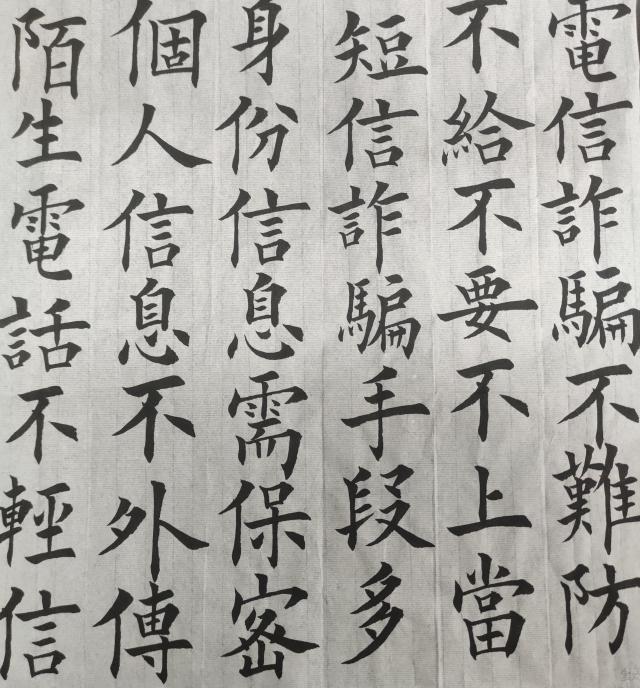 電信詐騙不難防
不給不要不上當
短信詐騙手段多
身份信息需保密
個人信息不外傳
陌生電話不輕信